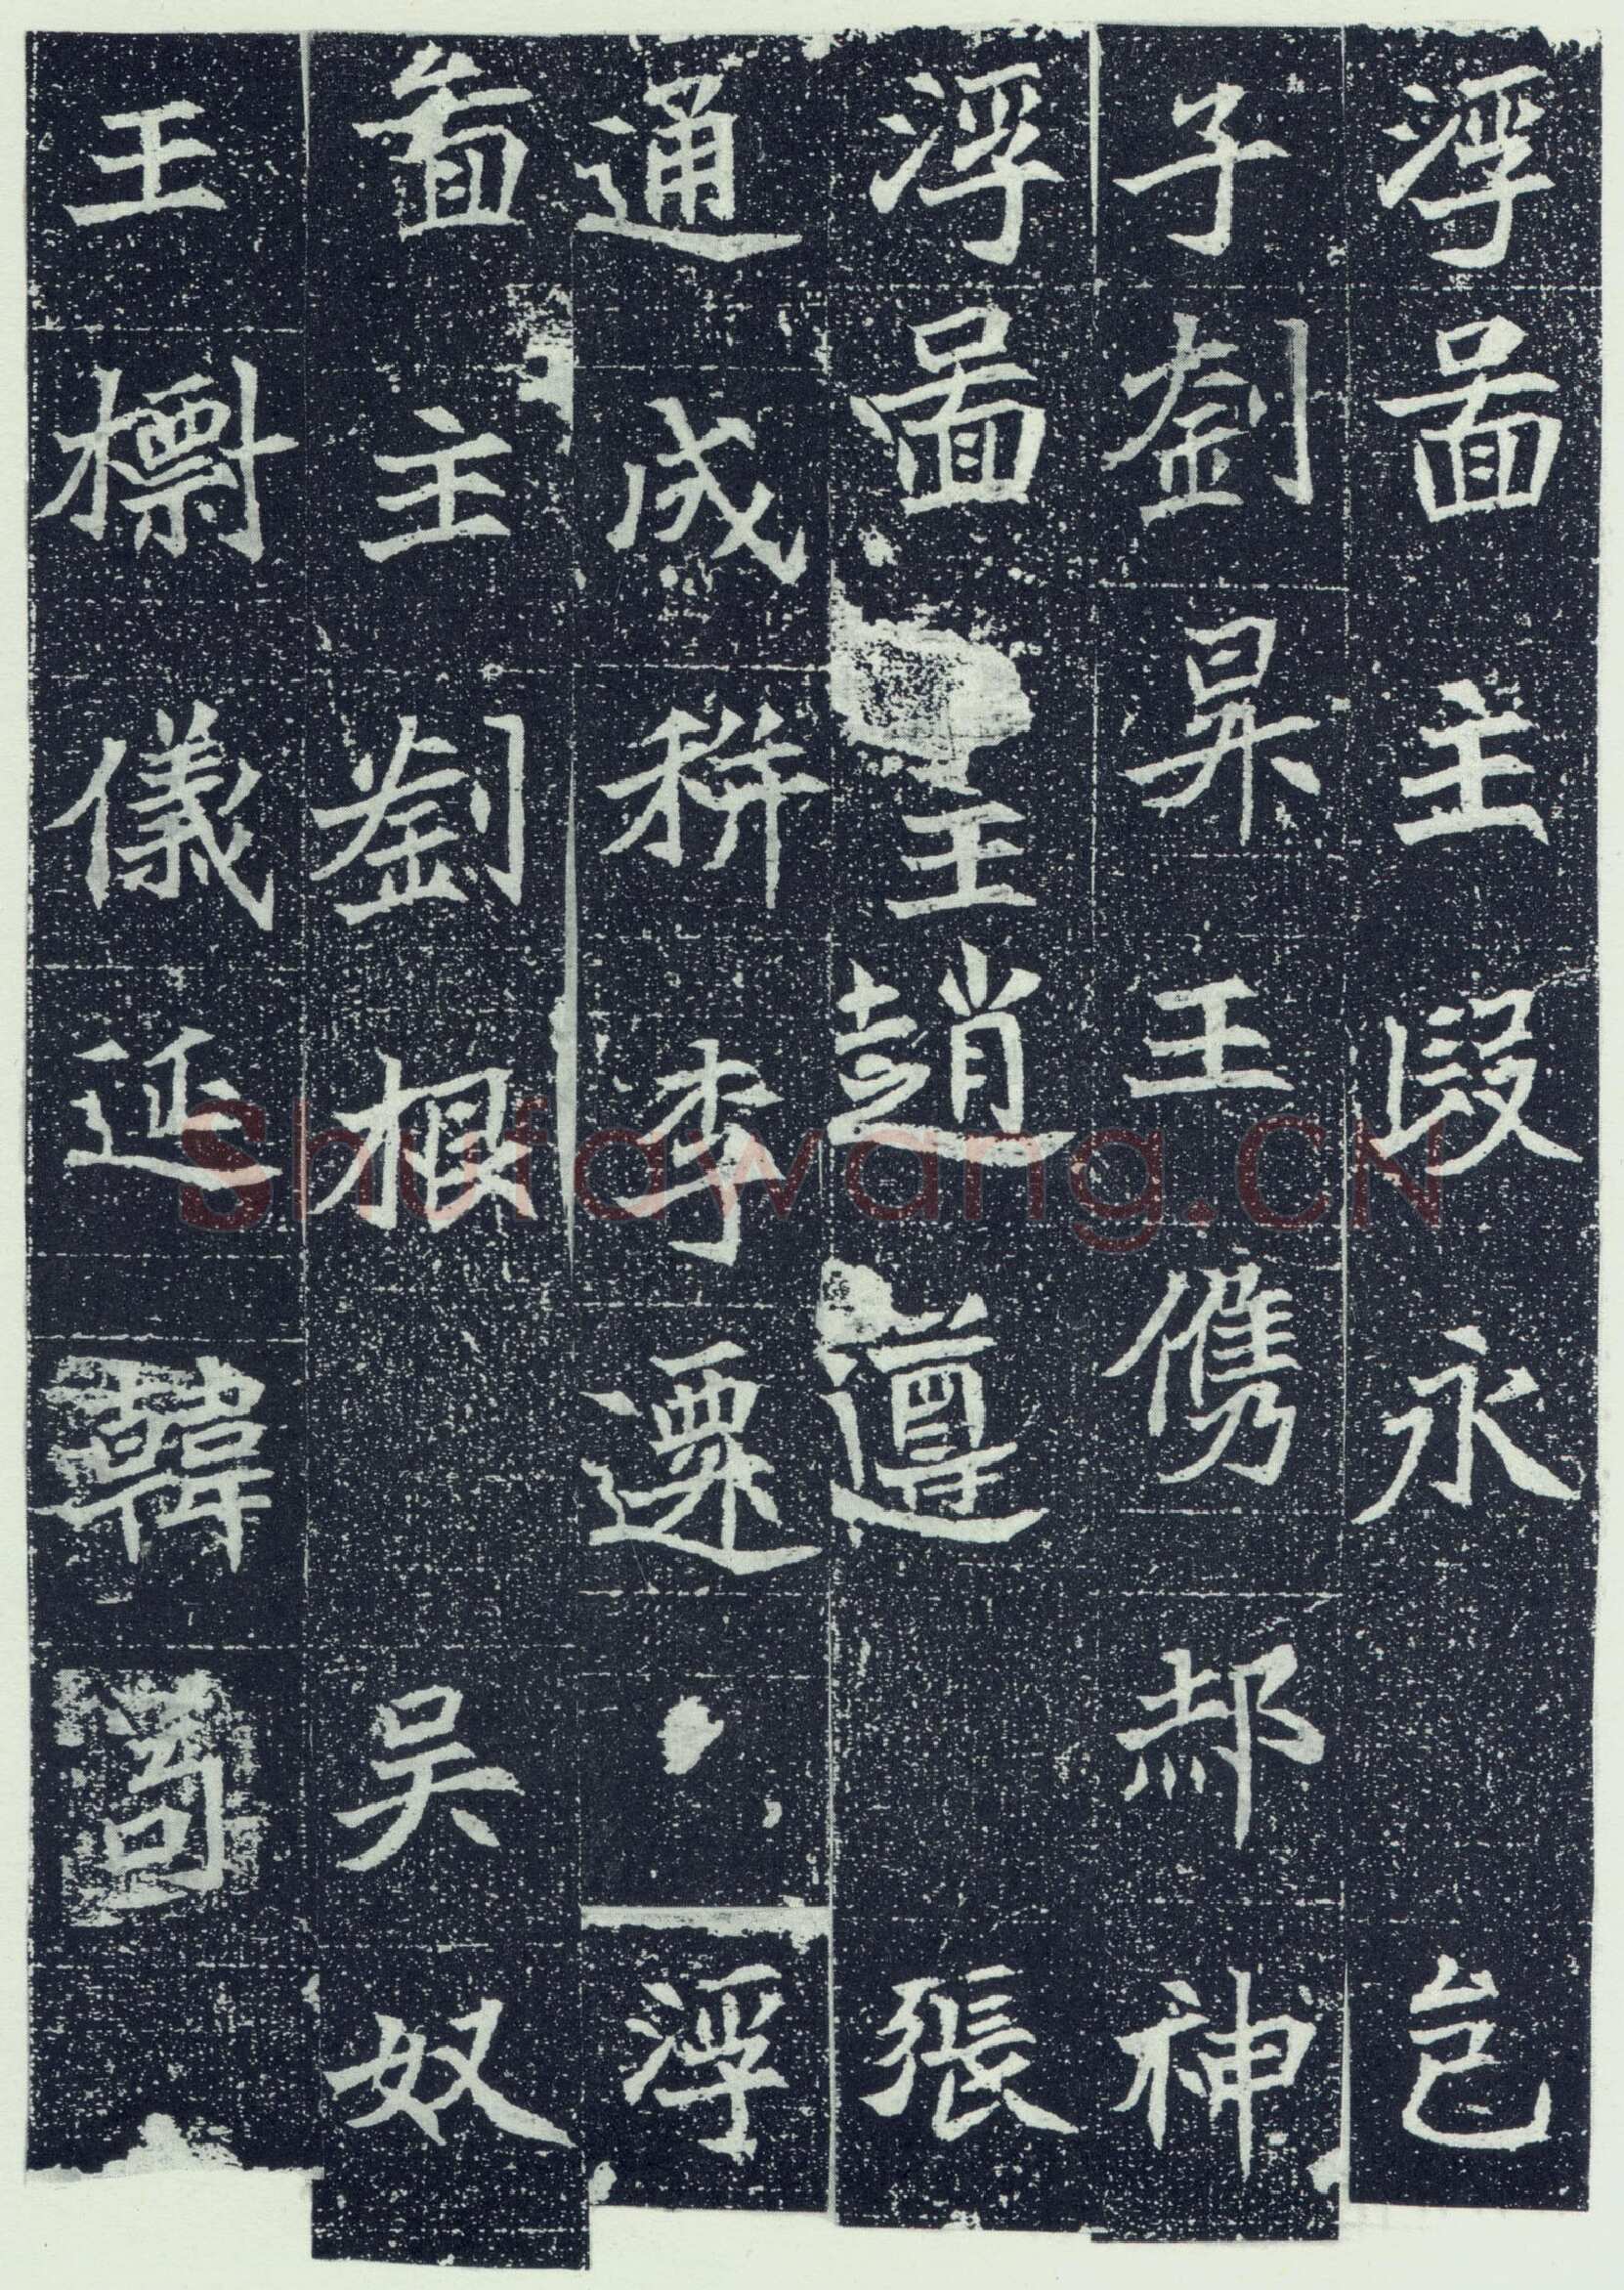 浮啚主段永邑
子劉昇王儁郝神
浮啚主趙遵張
通成李遷浮
啚主劉根吳奴
王儀延韓
Shufawang.CN